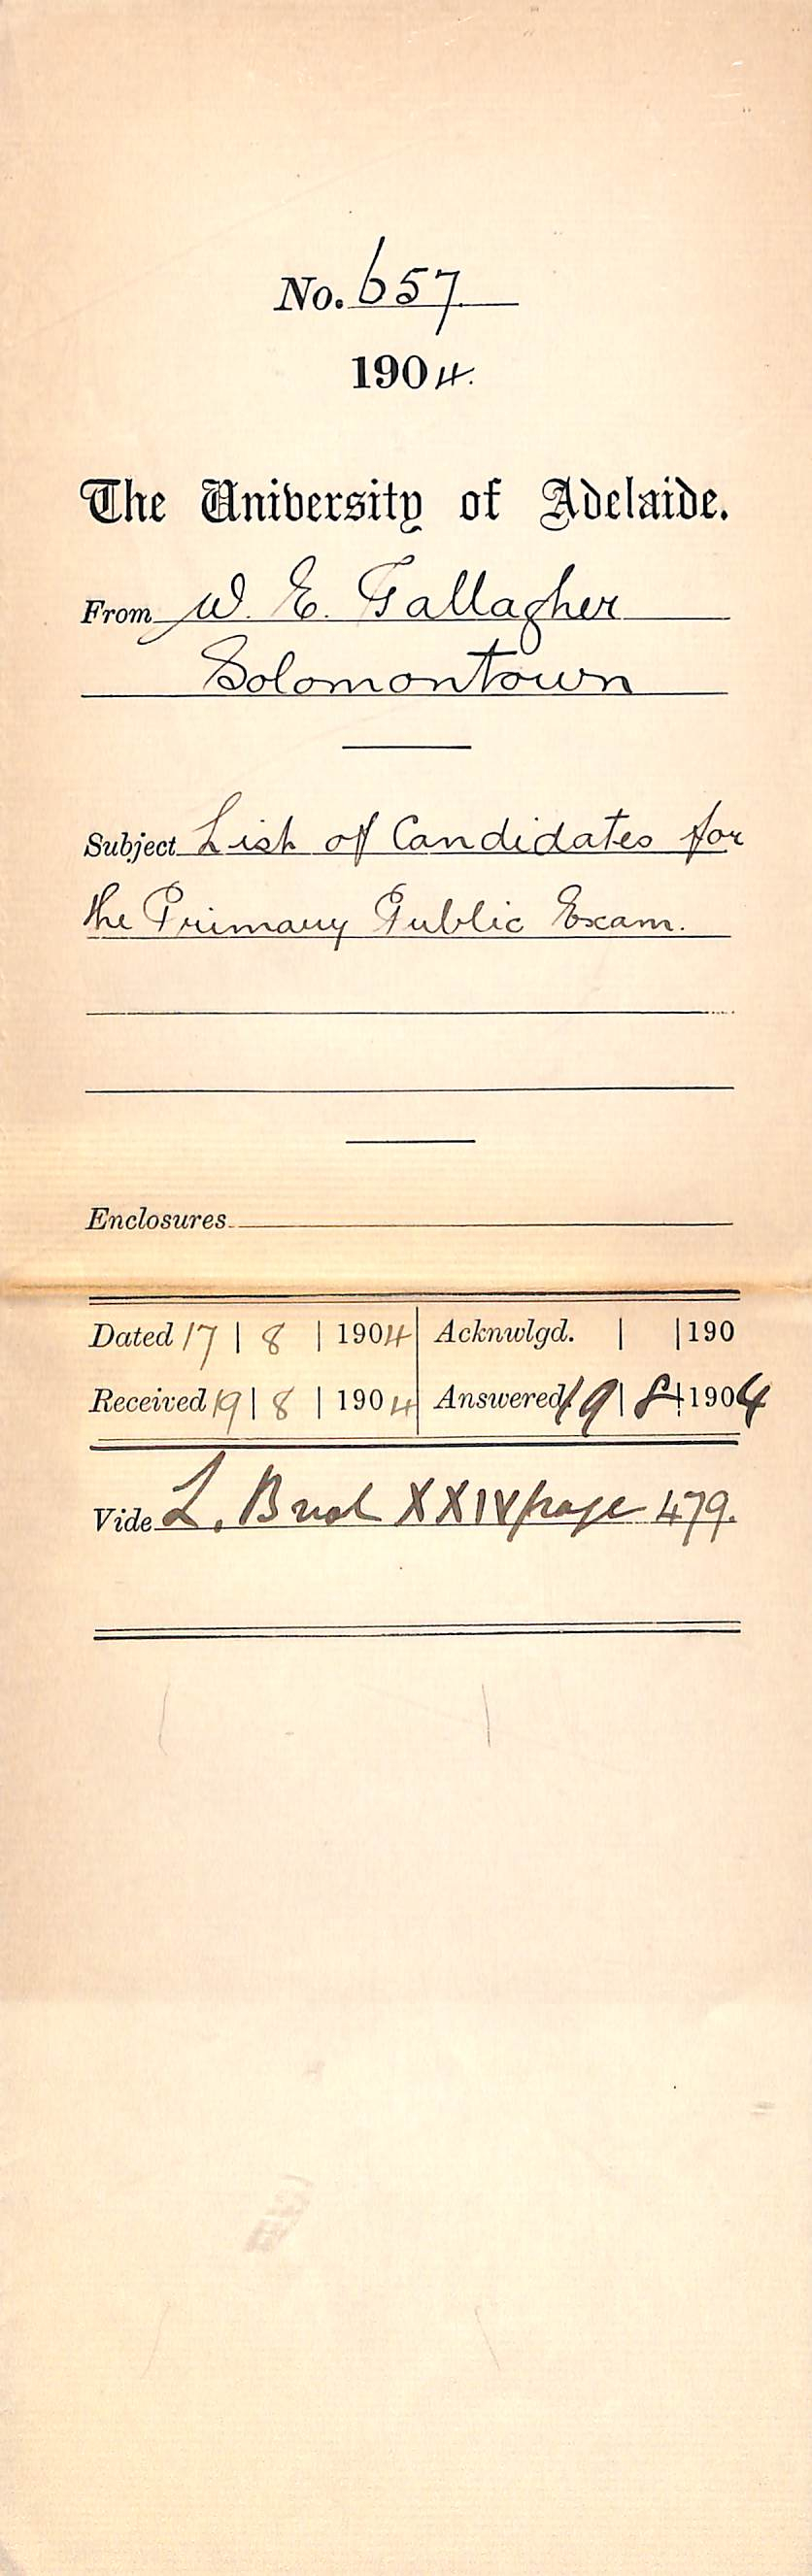 No. 657
1904.
The University of Adelaide.
From W. E. Gallagher
Solomontown
Subject List of Candidates for
the Primary Public Exam.
Enclosures
Dated 17 | 8 | 1904 Acknwlgd. | | 190
Received 19 | 8 | 1904 Answered 19 | 8 | 1904
Vide L. Book XXIV page 479.